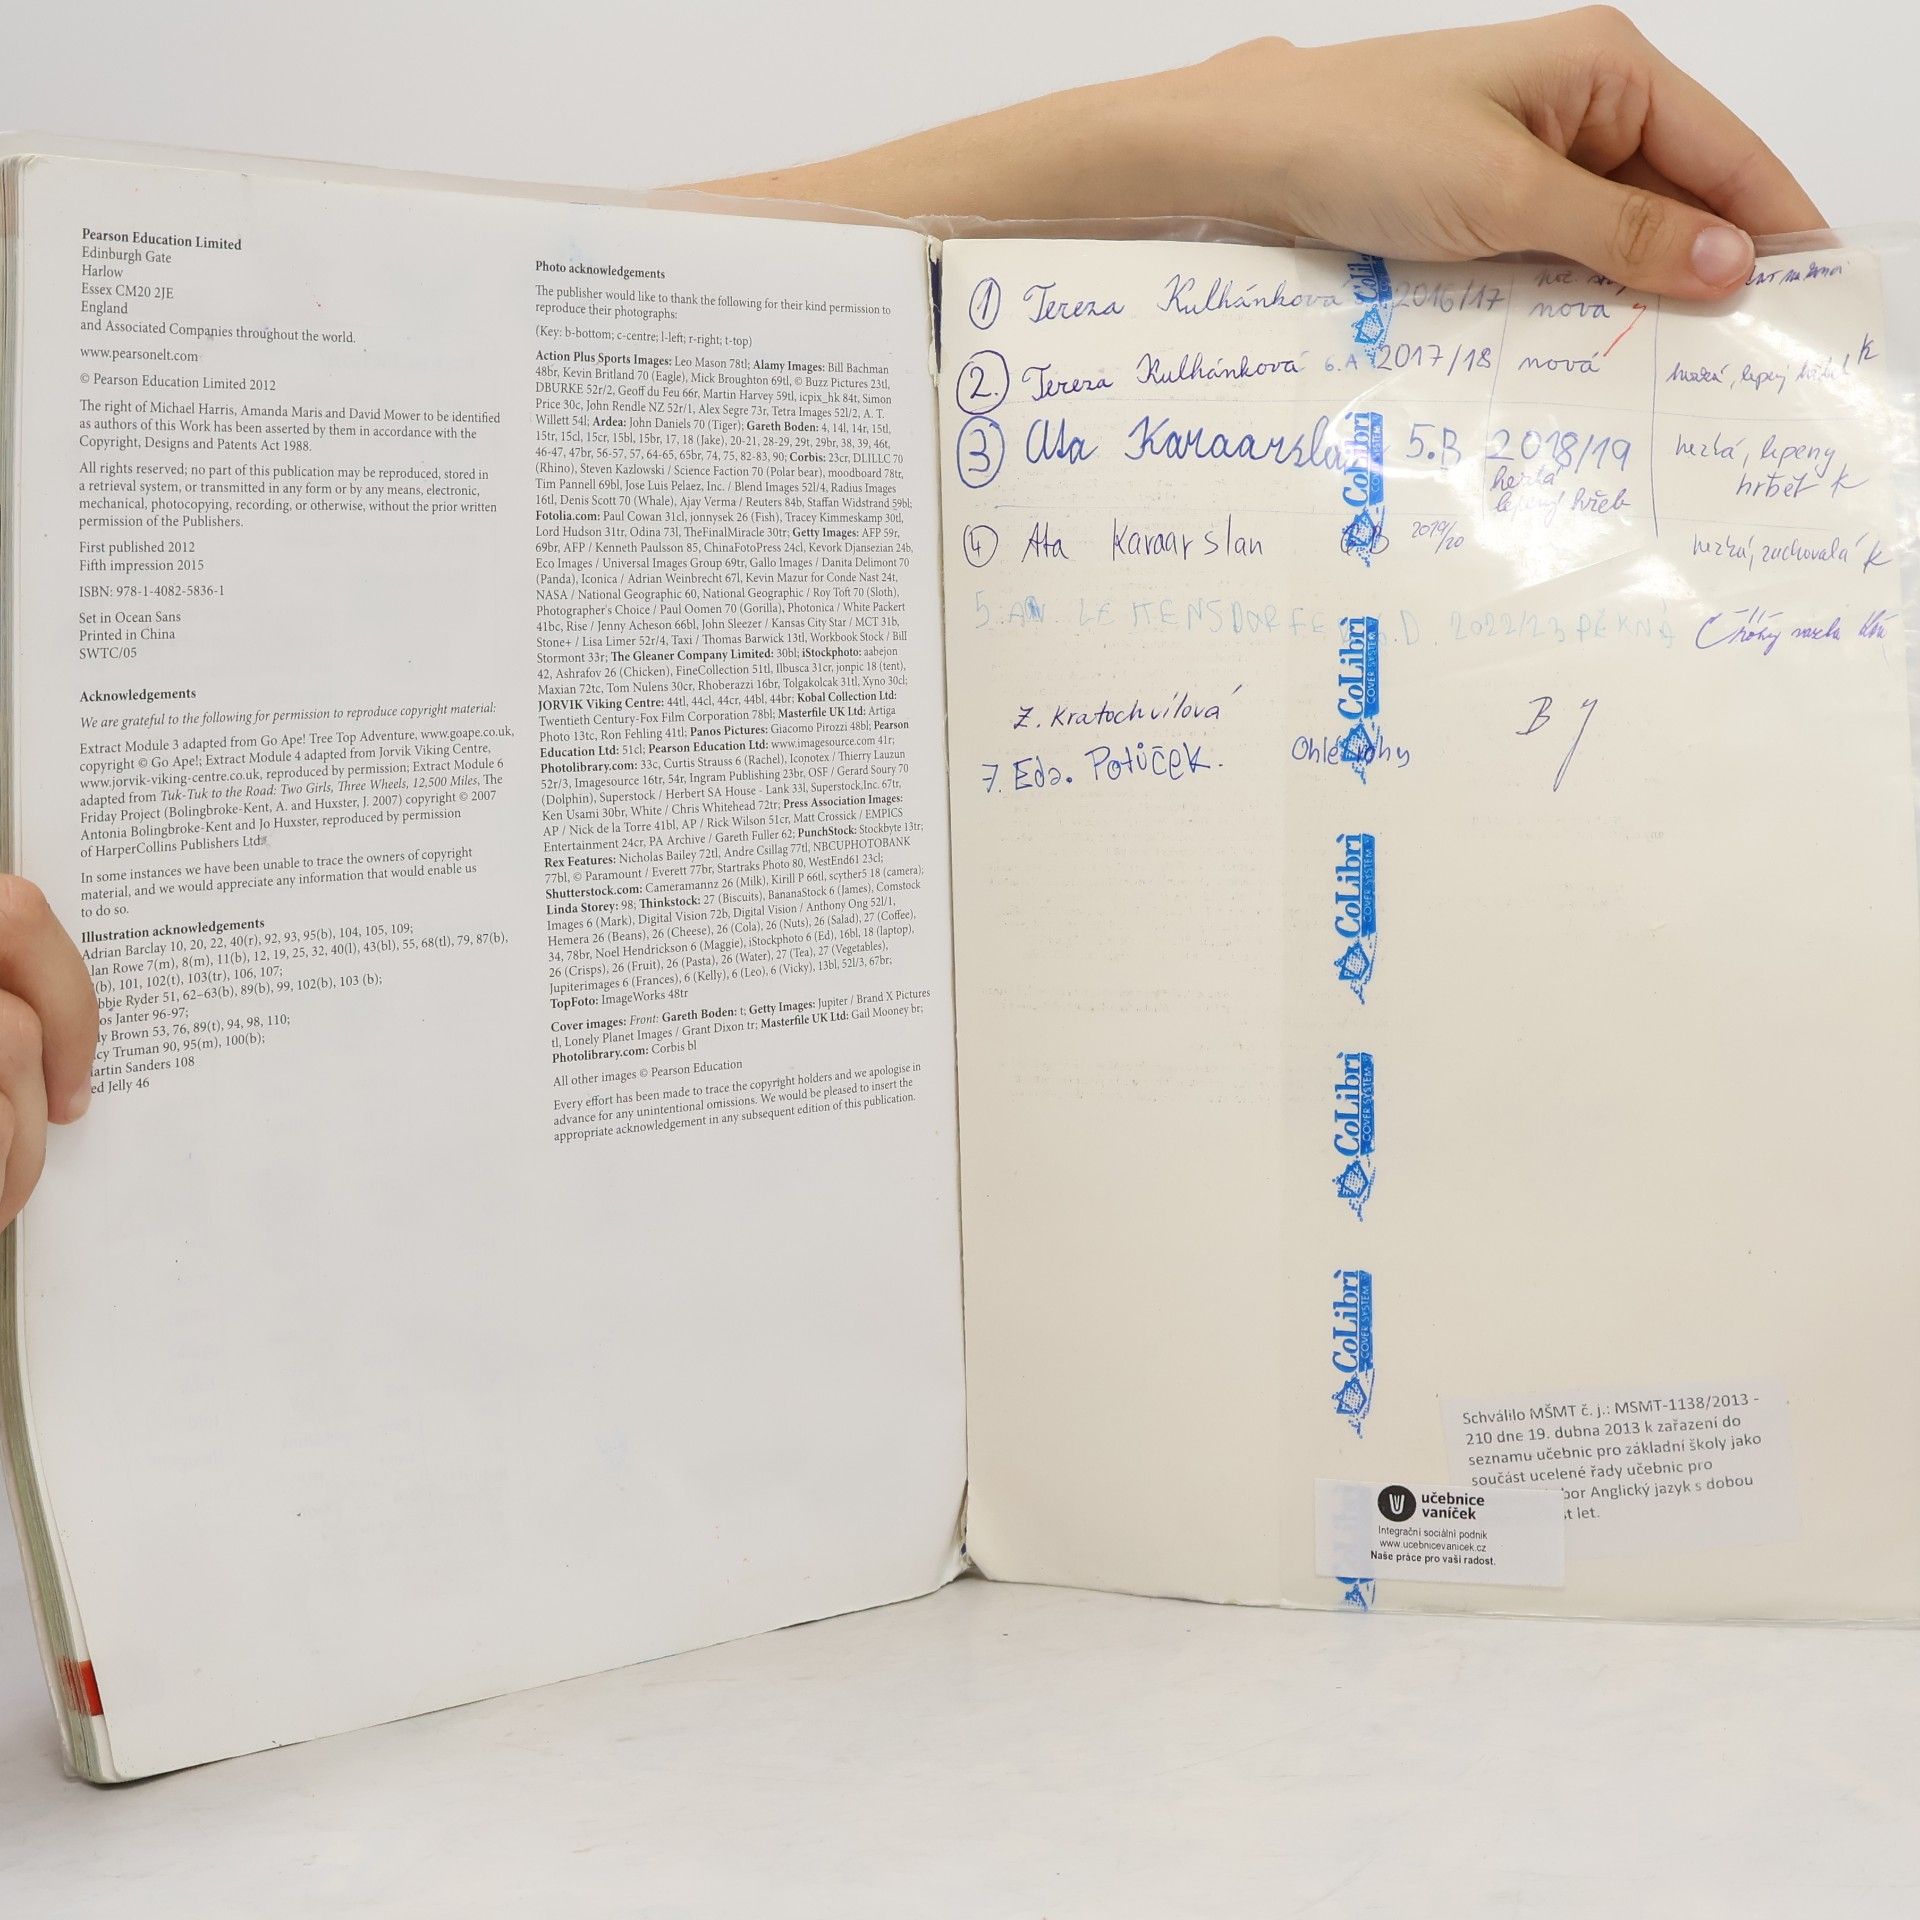 Pearson Education Limited
Edinburgh Gate
Harlow
Essex CM20 2JE
England
and Associated Companies throughout the world.
www.pearsonelt.com
© Pearson Education Limited 2012
The right of Michael Harris, Amanda Maris and David Mower to be identified
as authors of this Work has been asserted by them in accordance with the
Copyright, Designs and Patents Act 1988.
All rights reserved; no part of this publication may be reproduced, stored in
a retrieval system, or transmitted in any form or by any means, electronic,
mechanical, photocopying, recording, or otherwise, without the prior written
permission of the Publishers.
First published 2012
Fifth impression 2015
ISBN: 978-1-4082-5836-1
Set in Ocean Sans
Printed in China
SWTC/05
Acknowledgements
We are grateful to the following for permission to reproduce copyright material:
Extract Module 3 adapted from Go Ape! Tree Top Adventure, www.goape.co.uk,
copyright © Go Ape!; Extract Module 4 adapted from Jorvik Viking Centre,
www.jorvik-viking-centre.co.uk, reproduced by permission; Extract Module 6
adapted from Tuk-Tuk to the Road: Two Girls, Three Wheels, 12,500 Miles, The
Friday Project (Bolingbroke-Kent, A. and Huxster, J. 2007) copyright © 2007
Antonia Bolingbroke-Kent and Jo Huxster, reproduced by permission
of HarperCollins Publishers Ltd.
In some instances we have been unable to trace the owners of copyright
material, and we would appreciate any information that would enable us
to do so.
Illustration acknowledgements
Adrian Barclay 10, 20, 22, 40(r), 92, 93, 95(b), 104, 105, 109;
lan Rowe 7(m), 8(m), 11(b), 12, 19, 25, 32, 40(l), 43(bl), 55, 68(tl), 79, 87(b),
(b), 101, 102(t), 103(tr), 106, 107;
bbie Ryder 51, 62–63(b), 89(b), 99, 102(b), 103 (b);
os Janter 96-97;
ly Brown 53, 76, 89(t), 94, 98, 110;
cy Truman 90, 95(m), 100(b);
artin Sanders 108
ed Jelly 46
Photo acknowledgements
The publisher would like to thank the following for their kind permission to
reproduce their photographs:
(Key: b-bottom; c-centre; l-left; r-right; t-top)
Action Plus Sports Images: Leo Mason 78tl; Alamy Images: Bill Bachman
48br, Kevin Britland 70 (Eagle), Mick Broughton 69tl, © Buzz Pictures 23tl,
DBURKE 52r/2, Geoff du Feu 66r, Martin Harvey 59tl, icpix_hk 84t, Simon
Price 30c, John Rendle NZ 52r/1, Alex Segre 73r, Tetra Images 52l/2, A. T.
Willett 54l; Ardea: John Daniels 70 (Tiger); Gareth Boden: 4, 14l, 14r, 15tl,
15tr, 15cl, 15cr, 15bl, 15br, 17, 18 (Jake), 20-21, 28-29, 29t, 29br, 38, 39, 46t,
46-47, 47br, 56-57, 57, 64-65, 65br, 74, 75, 82-83, 90; Corbis: 23cr, DLILLC 70
(Rhino), Steven Kazlowski / Science Faction 70 (Polar bear), moodboard 78tr,
Tim Pannell 69bl, Jose Luis Pelaez, Inc. / Blend Images 52l/4, Radius Images
16tl, Denis Scott 70 (Whale), Ajay Verma / Reuters 84b, Staffan Widstrand 59bl;
Fotolia.com: Paul Cowan 31cl, jonnysek 26 (Fish), Tracey Kimmeskamp 30tl,
Lord Hudson 31tr, Odina 73l, TheFinalMiracle 30tr; Getty Images: AFP 59r,
69br, AFP / Kenneth Paulsson 85, ChinaFotoPress 24cl, Kevork Djansezian 24b,
Eco Images / Universal Images Group 69tr, Gallo Images / Danita Delimont 70
(Panda), Iconica / Adrian Weinbrecht 67l, Kevin Mazur for Conde Nast 24t,
NASA / National Geographic 60, National Geographic / Roy Toft 70 (Sloth),
Photographer's Choice / Paul Oomen 70 (Gorilla), Photonica / White Packert
41bc, Rise / Jenny Acheson 66bl, John Sleezer / Kansas City Star / MCT 31b,
Stone+ / Lisa Limer 52r/4, Taxi / Thomas Barwick 13tl, Workbook Stock / Bill
Stormont 33r; The Gleaner Company Limited: 30bl; iStockphoto: aabejon
42, Ashrafov 26 (Chicken), FineCollection 51tl, Ilbusca 31cr, jonpic 18 (tent),
Maxian 72tc, Tom Nulens 30cr, Rhoberazzi 16br, Tolgakolcak 31tl, Xyno 30cl;
JORVIK Viking Centre: 44tl, 44cl, 44cr, 44bl, 44br; Kobal Collection Ltd:
Twentieth Century-Fox Film Corporation 78bl; Masterfile UK Ltd: Artiga
Photo 13tc, Ron Fehling 41tl; Panos Pictures: Giacomo Pirozzi 48bl; Pearson
Education Ltd: 51cl; Pearson Education Ltd: www.imagesource.com 41r;
Photolibrary.com: 33c, Curtis Strauss 6 (Rachel), Iconotex / Thierry Lauzun
52r/3, Imagesource 16tr, 54r, Ingram Publishing 23br, OSF / Gerard Soury 70
(Dolphin), Superstock / Herbert SA House - Lank 33l, Superstock,Inc. 67tr,
Ken Usami 30br, White / Chris Whitehead 72tr; Press Association Images:
AP / Nick de la Torre 41bl, AP / Rick Wilson 51cr, Matt Crossick / EMPICS
Entertainment 24cr, PA Archive / Gareth Fuller 62; PunchStock: Stockbyte 13tr;
Rex Features: Nicholas Bailey 72tl, Andre Csillag 77tl, NBCUPHOTOBANK
77bl, © Paramount / Everett 77br, Startraks Photo 80, WestEnd61 23cl;
Shutterstock.com: Cameramannz 26 (Milk), Kirill P 66tl, scyther5 18 (camera);
Linda Storey: 98; Thinkstock: 27 (Biscuits), BananaStock 6 (James), Comstock
Images 6 (Mark), Digital Vision 72b, Digital Vision / Anthony Ong 52l/1,
Hemera 26 (Beans), 26 (Cheese), 26 (Cola), 26 (Nuts), 26 (Salad), 27 (Coffee),
34, 78br, Noel Hendrickson 6 (Maggie), iStockphoto 6 (Ed), 16bl, 18 (laptop),
26 (Crisps), 26 (Fruit), 26 (Pasta), 26 (Water), 27 (Tea), 27 (Vegetables),
Jupiterimages 6 (Frances), 6 (Kelly), 6 (Leo), 6 (Vicky), 13bl, 52l/3, 67br;
TopFoto: ImageWorks 48tr
Cover images: Front: Gareth Boden: t; Getty Images: Jupiter / Brand X Pictures
tl, Lonely Planet Images / Grant Dixon tr; Masterfile UK Ltd: Gail Mooney br;
Photolibrary.com: Corbis bl
All other images © Pearson Education
Every effort has been made to trace the copyright holders and we apologise in
advance for any unintentional omissions. We would be pleased to insert the
appropriate acknowledgement in any subsequent edition of this publication.
1 Tereza Kulhánková 2016/17 nová
2. Tereza Kulhánková 6.A 2017/18 nová K
3 Ata Karaarslan 5.B 2018/19 hezká, lepený
hezká hřbet K
lepený hřeb
4 Ata Karaarslan B 2019/20 hezká, zachovalá K
5. D 2022/23 PĚKNÁ
Z. Kratochvílová B
7. Eda. Potůček. Ohlé rohy
CoLibrì
COVER SYSTEM
CoLibrì
COVER SYSTEM
CoLibrì
COVER SYSTEM
CoLibrì
COVER SYSTEM
CoLibrì
COVER SYSTEM
Schválilo MŠMT č. j.: MSMT-1138/2013 -
210 dne 19. dubna 2013 k zařazení do
seznamu učebnic pro základní školy jako
součást ucelené řady učebnic pro
bor Anglický jazyk s dobou
st let.
učebnice
vaníček
Integrační sociální podnik
www.ucebnicevanicek.cz
Naše práce pro vaši radost.